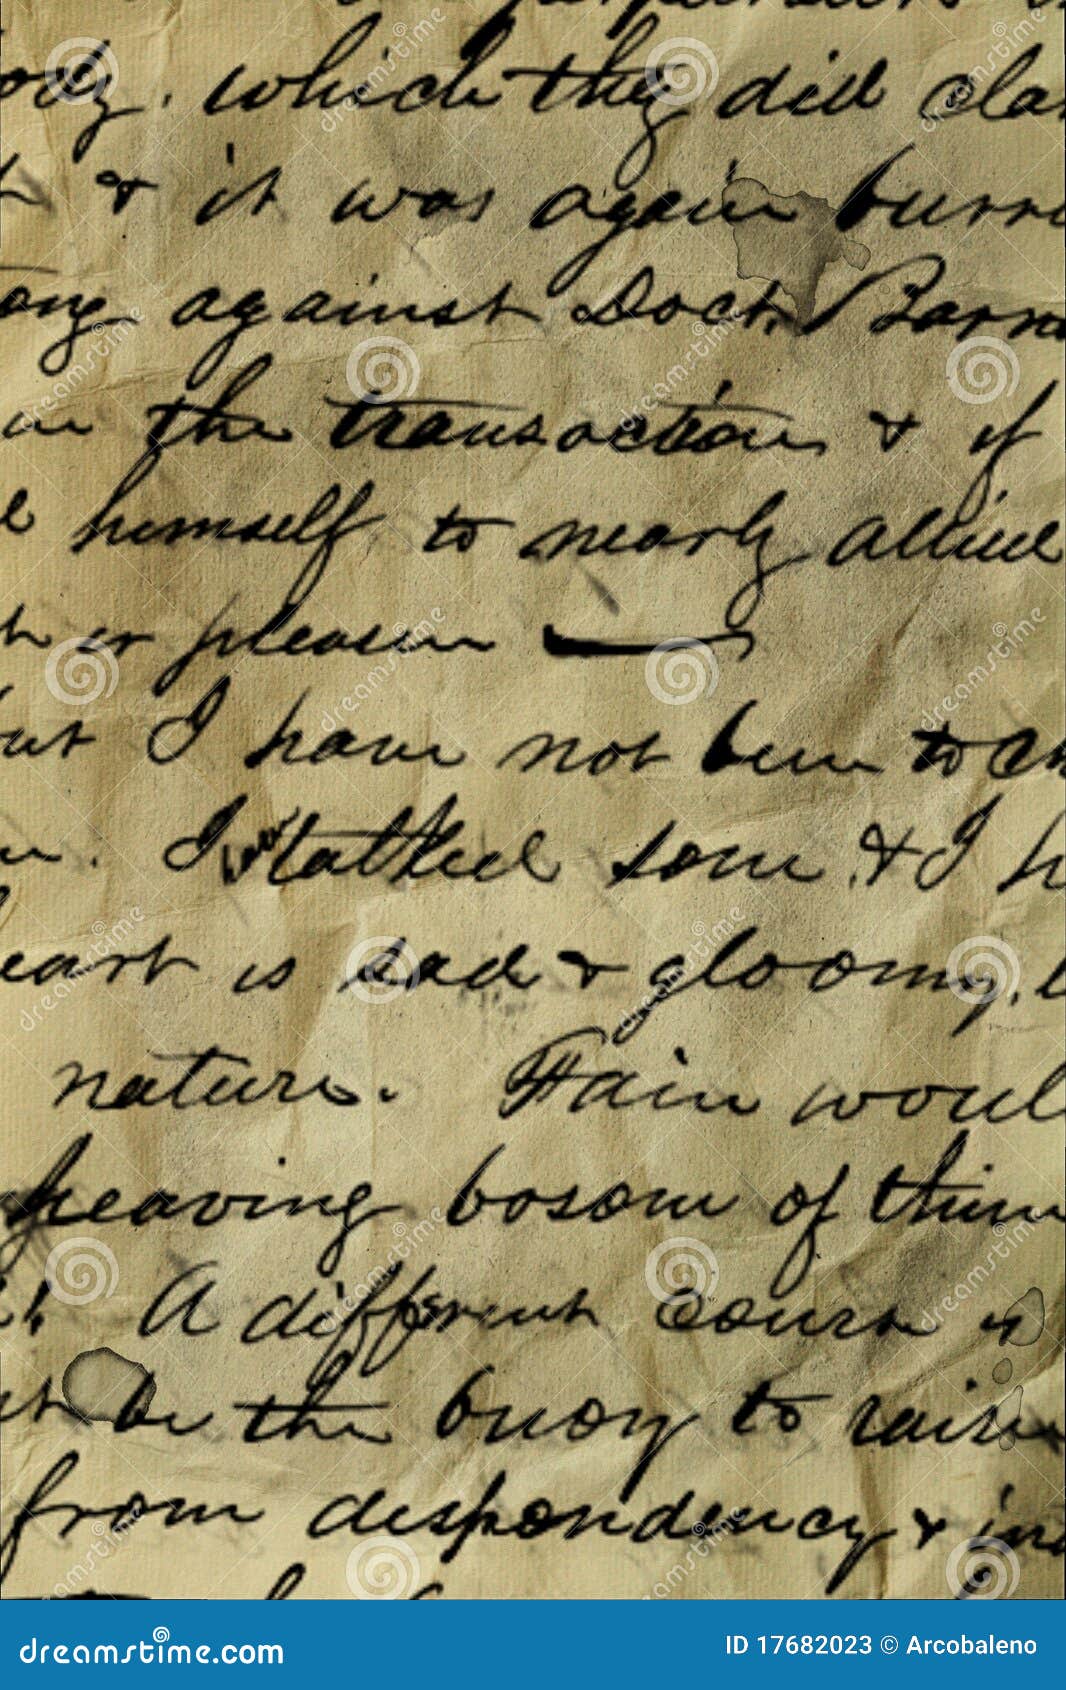 ody. which they did cla
t & it was again burr
ong against Doct. Barr
in the transaction & if
himself to nearly allied
or pleasure
but I have not been to ch
I have talked some & I h
eart is sad & gloomy,
nature. Fain woul
heaving bosom of
A different course is
be the buoy to raise
from despondency & in
dreamstime.com
ID 17682023 © Arcobaleno